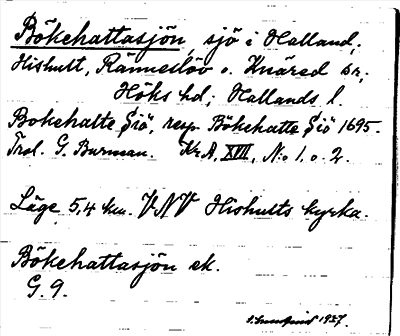 Bökehattasjön, sjö i Halland,
Hishult, Ränneslöv o. Knäred sr,
Höks hd; Hallands l.
Bokehatte Siö, resp. Bökehatte Siö 1695.
Trol. G. Burman. Kr.A, XVII, N:o 1. o. 2.
Läge 5,4 km. VNV Hishults kyrka.
Bökehattasjön ek.
G. 9.
1927